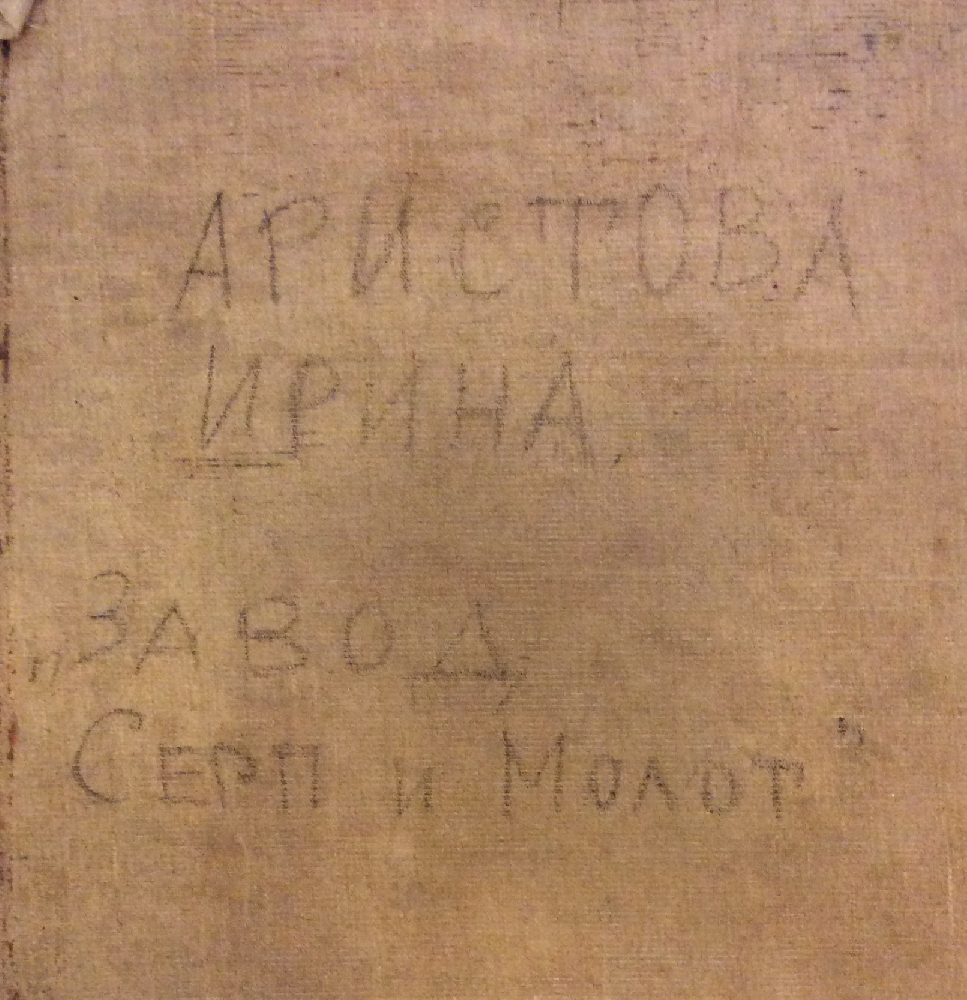 АРИСТОВА
ИРИНА.
„ЗАВОД
Серп и Молот”